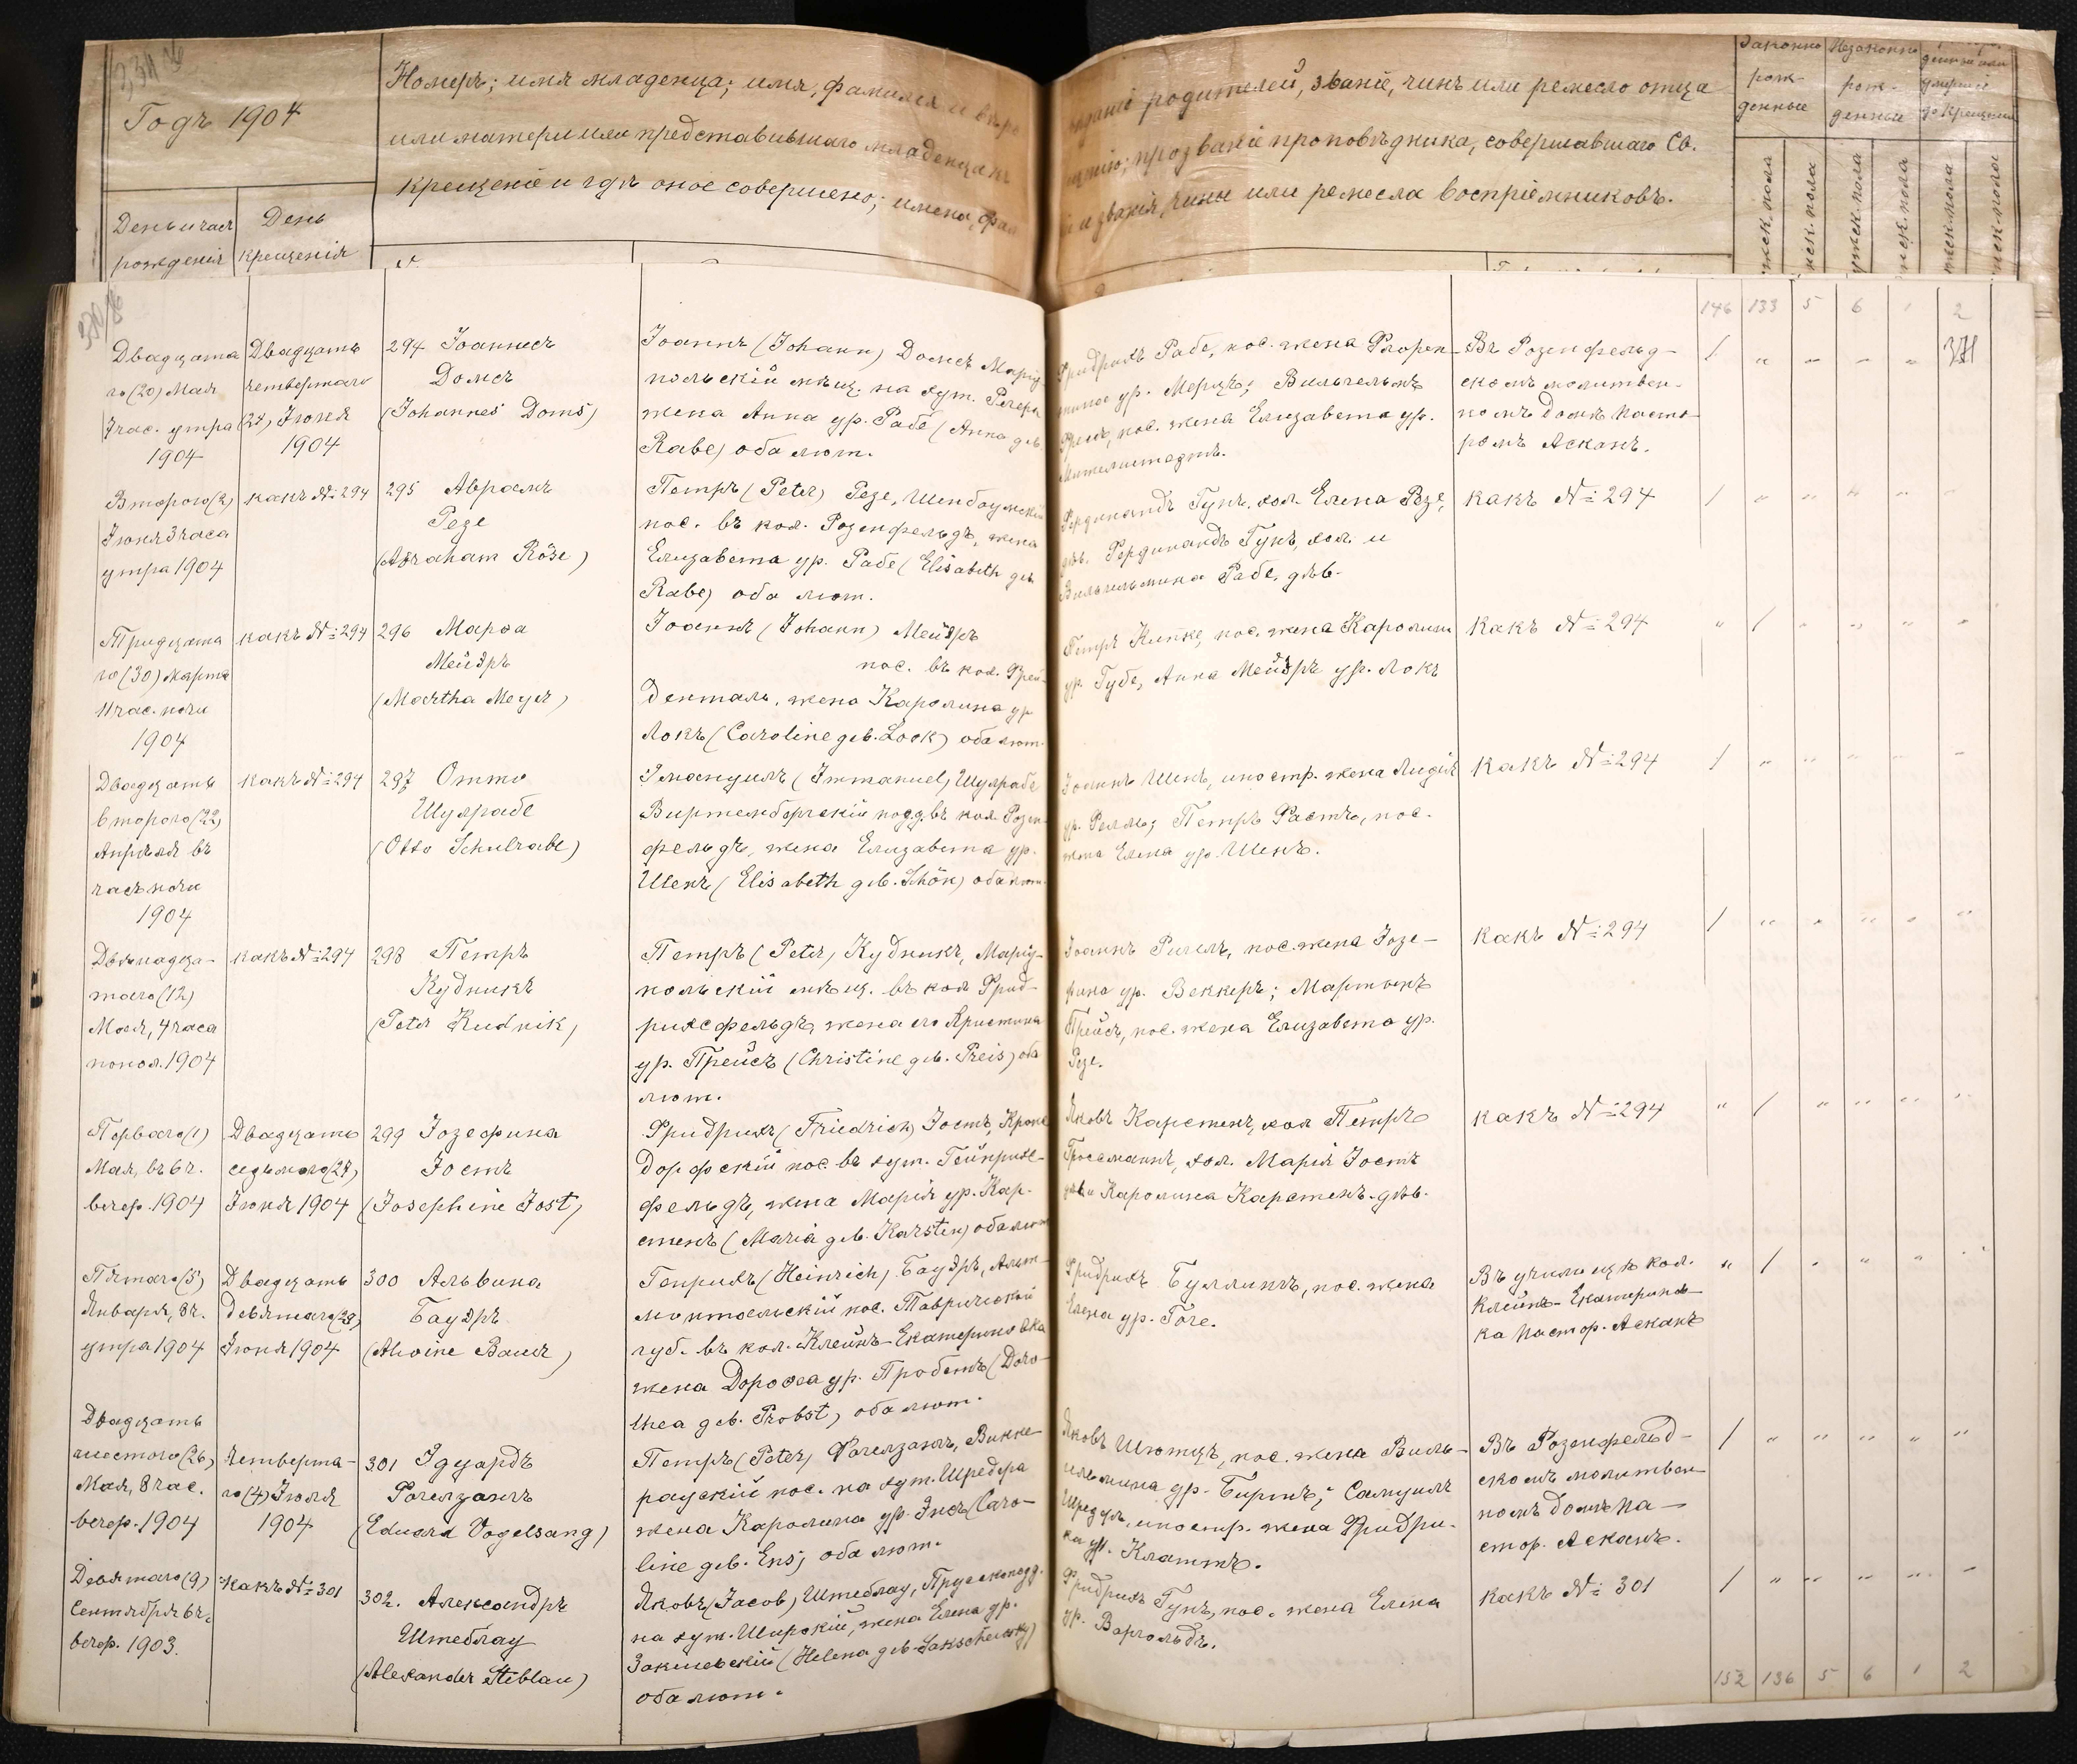 Годъ 1904
Номеръ; имя младенца; имя, фамилія и вѣро
или матери или представившаго младенца къ
крещенію и гдѣ оное совершено; имена, фам
родителей, званіе, чинъ или ремесло отца
прозваніе проповѣдника, совершавшаго Св.
и званія, чины или ремесла воспріемниковъ.
День и часъ рожденія
День крещенія
Законно рож-
денные
Незаконно рож-
денные
умершіе
до крещенія
146 133 5 6 1 2
370
371
Двадцата
го (20) Мая
7 час. утра
1904
Двадцать
четвертаго
(24) Іюня
1904
294 Іоаннесъ
Домсъ
(Johannes Doms)
Іоаннъ (Johann) Домсъ Маріу-
польскій мѣщ. на хут.
жена Анна ур. Рабе (Anna geb.
Rabe) оба лют.
Фридрихъ Рабе, пос. жена Флорен-
тине ур. Мерцъ; Вильгельмъ
пос. жена Елизавета ур.
Въ Розенфельд-
скомъ молитвен-
номъ домѣ Пасто-
ромъ Асканъ.
Второго (2)
Іюня 3 часа
утра 1904
какъ № 294
295 Авраамъ
Резе
(Abraham Röse)
Петръ (Peter) Резе, Шенбаумскій
пос. въ кол. Розенфельдъ, жена
Елизавета ур. Рабе (Elisabeth geb.
Rabe) оба лют.
Фердинандъ Гунъ, хол. Елена Резе,
дѣв. Фердинандъ Гунъ, хол. и
Вильгельмина Рабе, дѣв.
какъ № 294
Тридцата
го (30) Марта
11 час. ночи
1904
какъ № 294
296 Марѳа
Мейэръ
(Martha Meyer)
Іоаннъ (Johann) Мейэръ
пос. въ кол. Фрей-
денталь, жена Каролина ур.
Локъ (Caroline geb. Lock) оба лют.
Петръ Кипке, пос. жена Каролина
ур. Губе, Анна Мейэръ ур. Локъ
какъ № 294
Двадцать
второго (22)
Апрѣля въ
часъ ночи
1904
какъ № 294
297 Отто
Шулрабе
(Otto Schulrabe)
Имануилъ (Immanuel) Шулрабе
Виртембергскій подд. въ кол. Розен-
фельдъ, жена Елизавета ур.
Шенъ (Elisabeth geb. Schön) оба лют.
Іоаннъ Шенъ, иностр. жена Лидія
ур. Релль; Петръ Фастъ, пос.
жена Елена ур. Шенъ.
какъ № 294
Двѣнадца-
таго (12)
Мая, 4 часа
попол. 1904
какъ № 294
298 Петръ
Кудникъ
(Peter Kudnik)
Петръ (Peter) Кудникъ, Маріу-
польскій мѣщ. въ кол. Фрид-
рихсфельдъ, жена его Христина
ур. Прейсъ (Christine geb. Preis) оба
лют.
Іоаннъ Ригель, пос. жена Іозе-
фина ур. Веккеръ; Мартинъ
Прейсъ, пос. жена Елизавета ур.
Резе.
какъ № 294
Перваго (1)
Мая, въ 6 ч.
вечер. 1904
Двадцать
седьмого (27)
Іюня 1904
299 Іозефина
Іостъ
(Josephine Jost)
Фридрихъ (Friedrich) Іостъ, Кроне
дорфскій пос. въ хут. Гейнрихс-
фельдъ, жена Марія ур. Кар-
стенъ (Maria geb. Karsten) оба лют.
Яковъ Карстенъ, хол. Петръ
Гроссманнъ, хол. Марія Іостъ
дѣв. и Каролина Карстенъ, дѣв.
какъ № 294
Пятаго (5)
Января, 8 ч.
утра 1904
Двадцать
девятаго (29)
Іюня 1904
300 Альвина
Бауэръ
(Alwine Bauer)
Генрихъ (Heinrich) Бауэръ, Альт-
монтальскій пос. Таврической
губ. въ кол. Клейнъ-Екатериновка
жена Дороѳеа ур. Пробстъ (Doro-
thea geb. Probst) оба лют.
Фридрихъ Буллингъ, пос. жена
Елена ур. Гоге.
Въ училищѣ кол.
Клейнъ-Екатеринов-
ка Пастор. Асканъ
Двадцать
шестого (26)
Мая, 8 час.
вечер. 1904
Четверта-
го (4) Іюля
1904
301 Эдуардъ
Фогелзангъ
(Eduard Vogelsang)
Петръ (Peter) Фогелзангъ, Викке-
раускій пос. на хут. Шредера
жена Каролина ур. Энсъ (Caro-
line geb. Ens) оба лют.
Яковъ Шютцъ, пос. жена Виль-
гельмина ур. Биртъ; Самуилъ
иностр. жена Фридри-
ка ур. Клаттъ.
Въ Розенфельд-
скомъ молитвен-
номъ домѣ Па-
стор. Асканъ.
Девятаго (9)
Сентября 6 ч.
вечер. 1903.
какъ № 301
302. Александръ
Штеблау
(Alexander Steblau)
Яковъ (Jacob) Штеблау, Прусскоподд.
на хут. Широкій, жена Елена ур.
Закшевскій (Helena geb. Sakschewsky)
оба лют.
Фридрихъ Гунъ, пос. жена Елена
ур. Варгольдъ.
какъ № 301
152 136 5 6 1 2